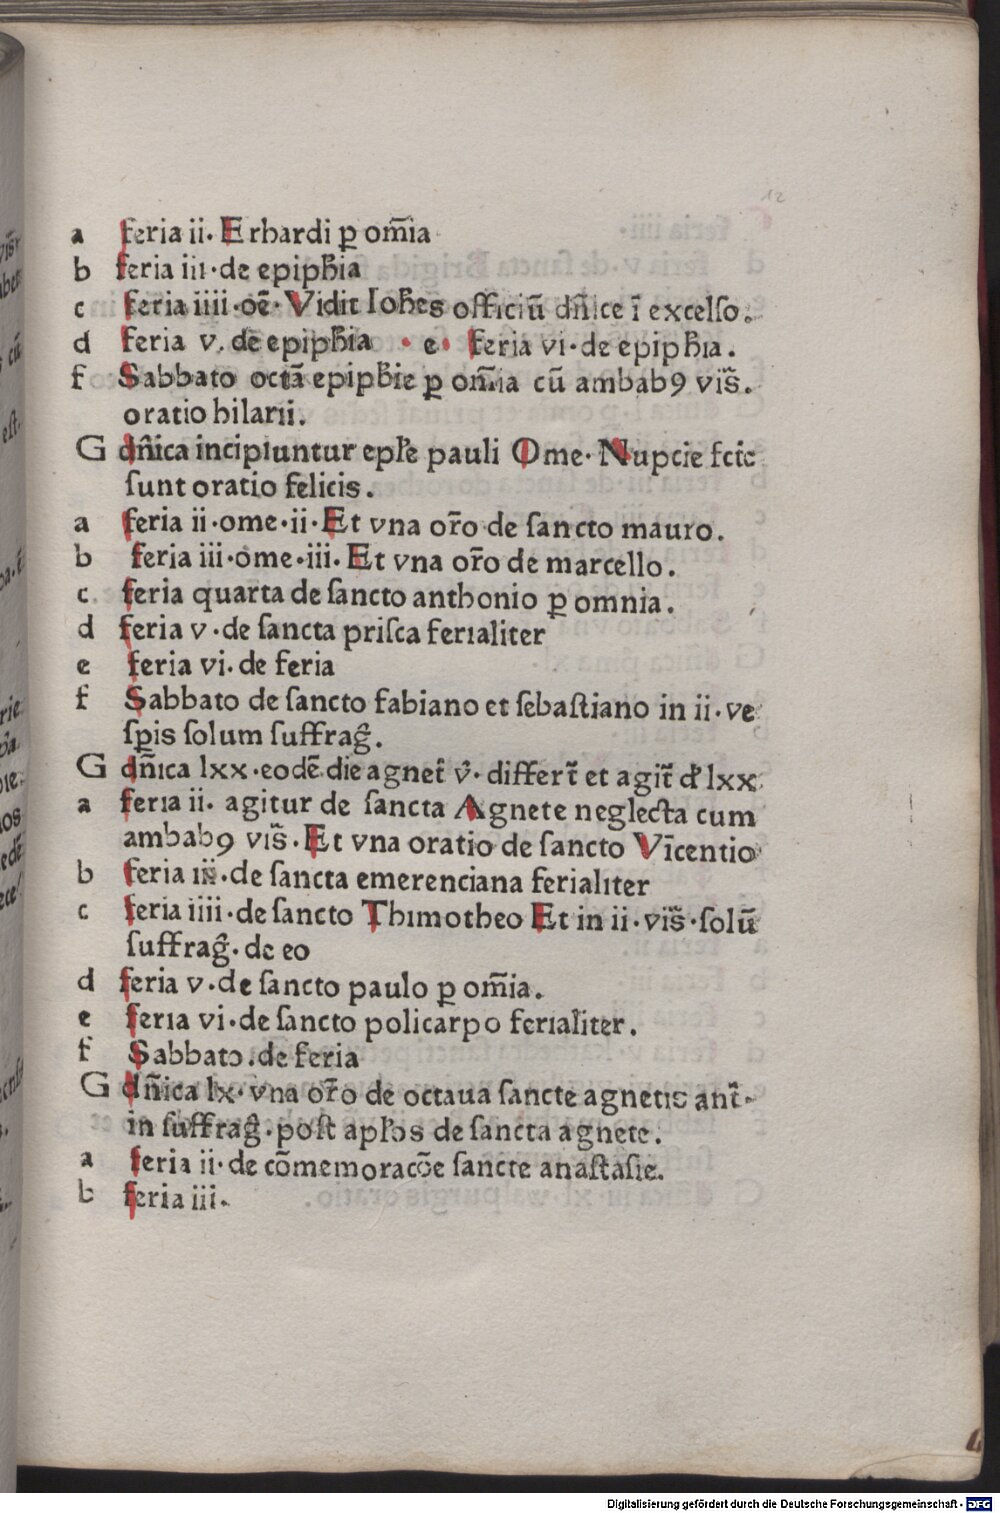 12
a feria ii. Erhardi ꝑ om̄ia
b feria iii·de epiph̄ia
c feria iiii·oē·Vidit Ioh̄es officiū dn̄ice ī excelſo.
d feria v. de epiph̄ia · e· feria vi·de epiph̄ia.
f Sabbato octā epiph̄ie ꝑ om̄ia cū ambabꝰ viſ̄.
oratio hilarii.
G dn̄ica incipiuntur epl̄e pauli Ome· Nupcie fcīe
ſunt oratio felicis.
a feria ii·ome·ii·Et vna or̄o de ſancto mauro.
b feria iii·ome·iii. Et vna or̄o de marcello.
c feria quarta de ſancto anthonio ꝑ omnia.
d feria v·de ſancta priſca ferialiter
e feria vi. de feria
f Sabbato de ſancto fabiano et ſebaſtiano in ii·ve
ſꝑis ſolum ſuffrag̑.
G dn̄ica lxx·eodē die agnet̄ v̄· differt̄ et agit̄ d̄ lxx
a feria ii. agitur de ſancta Agnete neglecta cum
ambabꝰ viſ̄. Et vna oratio de ſancto Vīcentio
b feria iii·de ſancta emerenciana ferialiter
c feria iiii·de ſancto Thimotheo Et in ii·viſ̄·ſolū
ſuffrag̑·de eo
d feria v·de ſancto paulo ꝑ om̄ia.
e feria vi·de ſancto policarpo ferialiter.
f Sabbato.de feria
G dn̄ica lx·vna or̄o de octaua ſancte agnetis ant̄-
in ſuffrag̑·poſt apl̄os de ſancta agnete.
a feria ii·de cōmemoracōe ſancte anaſtaſie.
b feria iii.
Digitalisierung gefördert durch die Deutsche Forschungsgemeinschaft - DFG